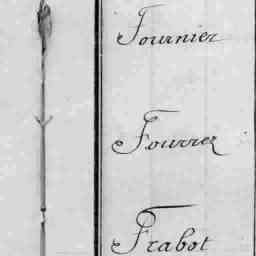 Fournier
Fourrez
Frabot